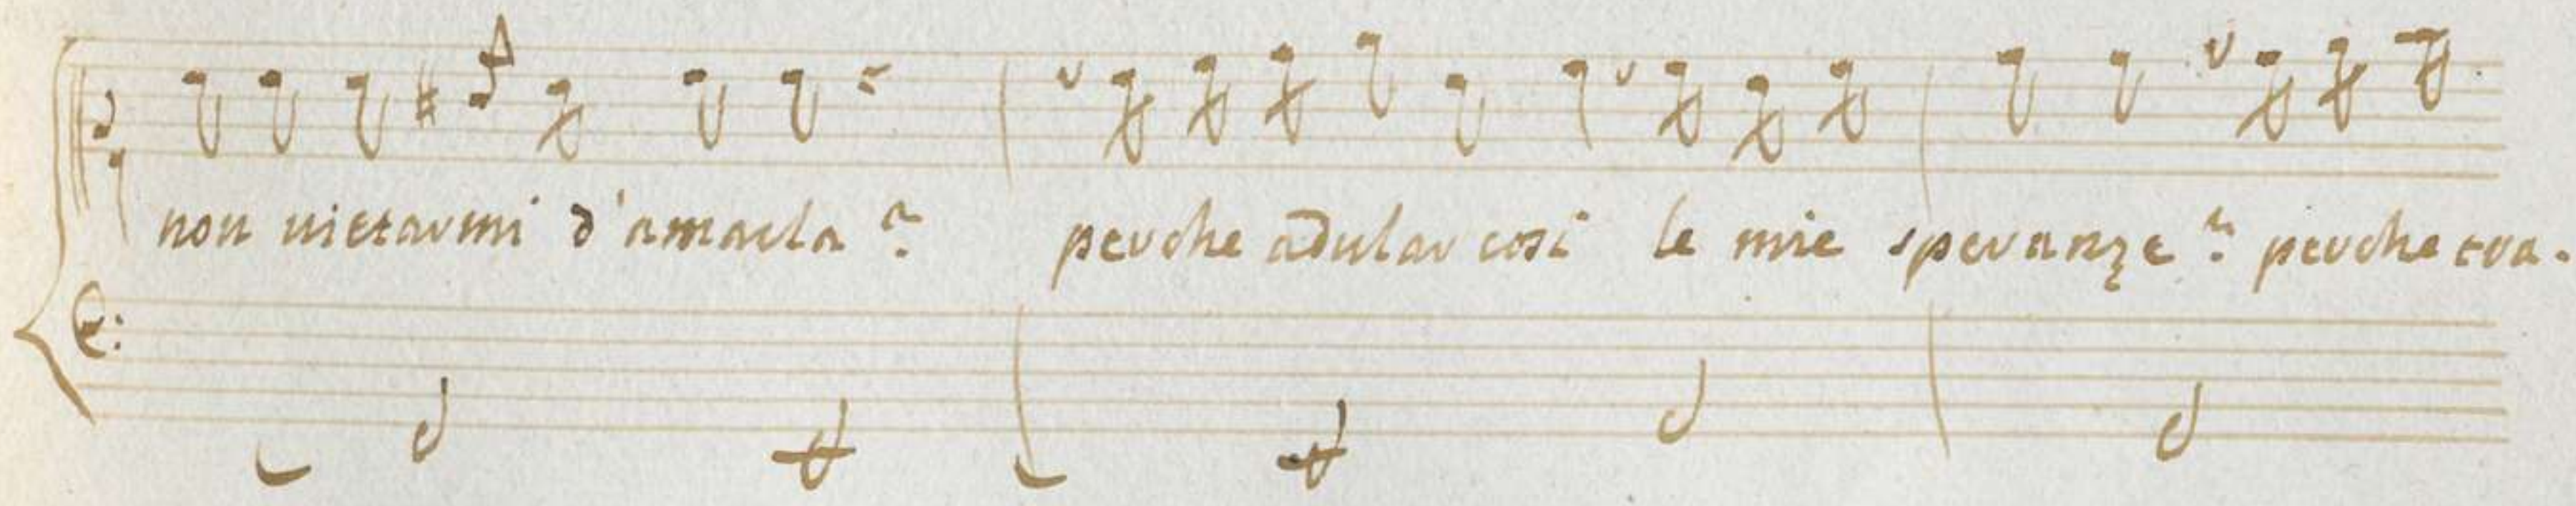 non vietarmi d'amarla? perche adular cosi le mie speranze? perche tra-